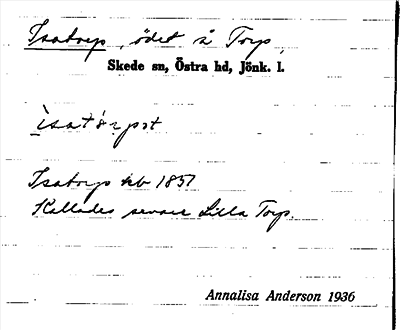 Isatorp, ödet å Torp,
Skede sn, Östra hd, Jönk. l.
Isatorp kb 1857
Kallades senare Lilla Torp.
Annalisa Anderson 1936